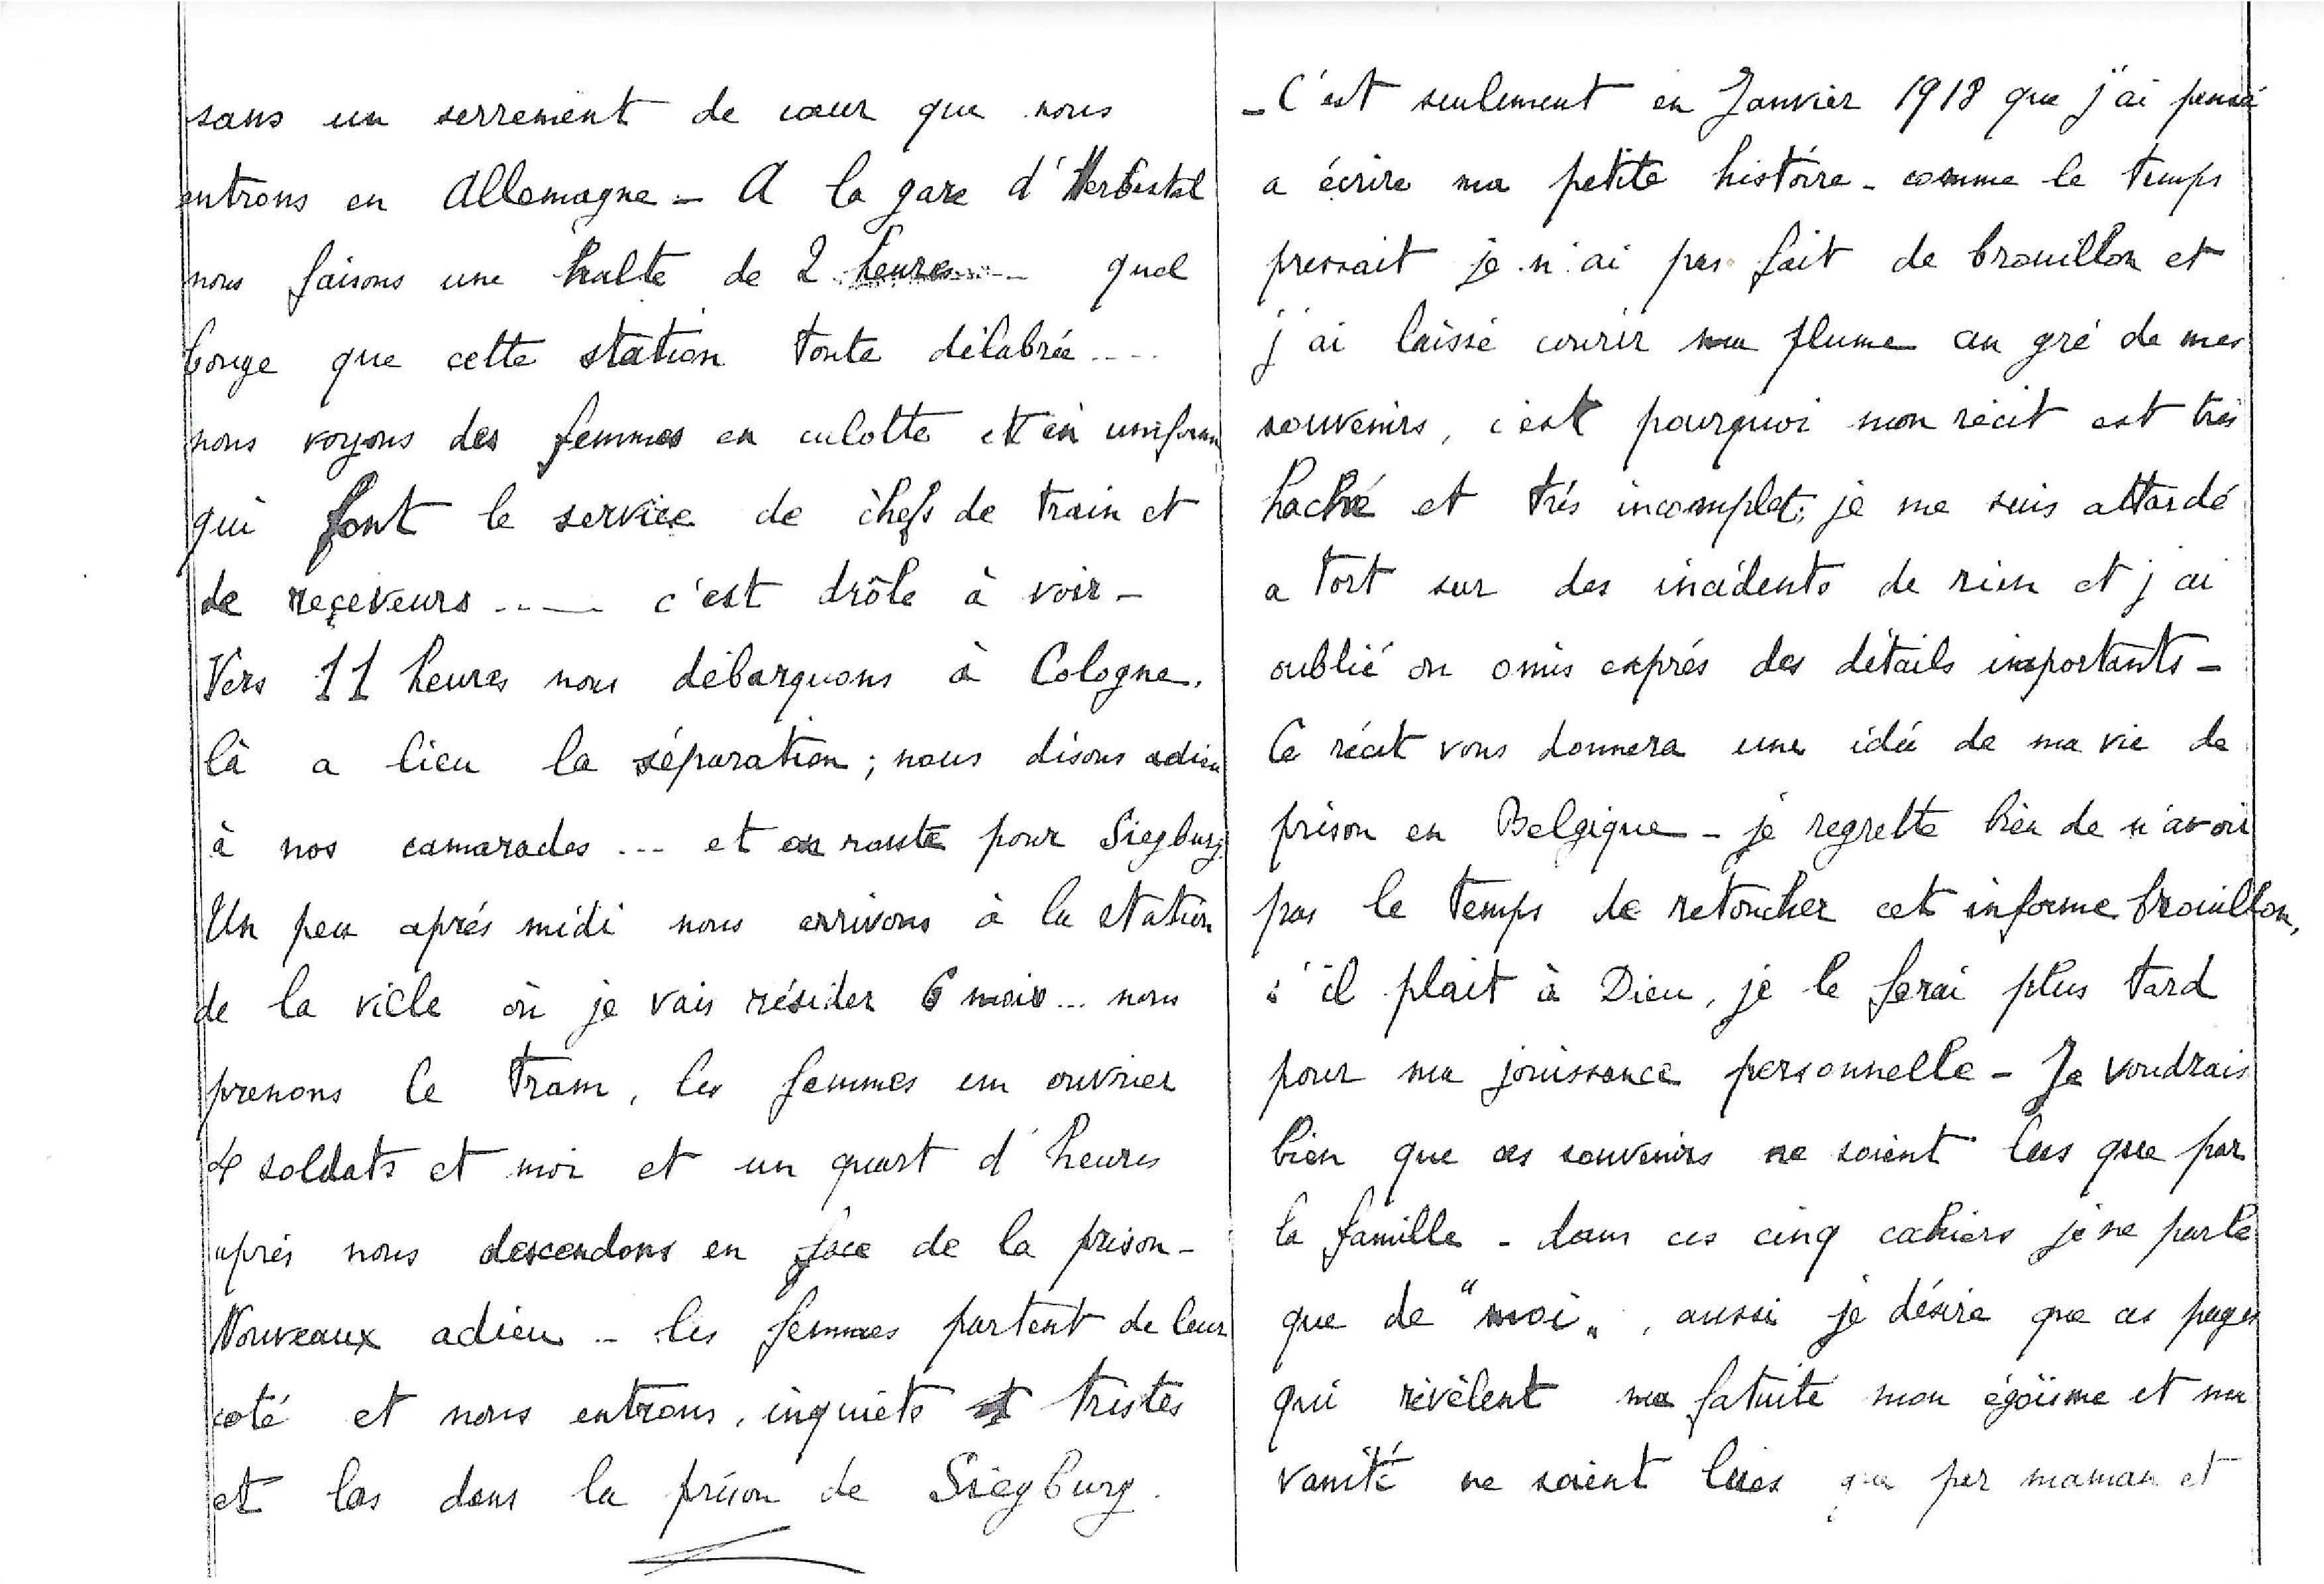 sans un serrement de cœur que nous
entrons en Allemagne - A la gare d'Herbestal
nous faisons une halte de 2 heures.... quel
bouge que cette station toute délabrée....
nous voyons des femmes en culotte et en uniforme
qui font le service de chefs de train et
de reçeveurs ..... c'est drôle à voir -
Vers 11 heures nous débarquons à Cologne.
là a lieu la séparation ; nous disons adieu
à nos camarades ... et en route pour Siegburg.
Un peu aprés midi nous arrivons à la station
de la ville où je vais résider 6 mois ... nous
prenons le tram, les femmes un ouvrier
4 soldats et moi et un quart d'heures
aprés nous descendons en face de la prison -
Nouveaux adieu - les femmes partent de leur
coté et nous entrons, inquiets et tristes
et las dans la prison de Siegburg.
- C'est seulement en Janvier 1918 que j'ai pensé
a écrire ma petite histoire - comme le temps
pressait je n'ai pas fait de brouillon et
j'ai laissé courir ma plume au gré de mes
souvenirs, c'est pourquoi mon récit est trés
haché et trés incomplet; je me suis attardé
a tort sur des incidents de rien et j'ai
oublié ou omis exprés des détails importants -
Ce récit vous donnera une idée de ma vie de
prison en Belgique - je regrette bien de n'avoir
pas le temps de retoucher cet informe brouillon,
s'il plait à Dieu, je le ferai plus tard
pour ma jouissance personnelle - Je voudrais
bien que ces souvenirs ne soient lus que par
la famille - dans ces cinq cahiers je ne parle
que de "moi", aussi je désire que ces pages
qui révèlent ma fatuité mon égoïsme et ma
vanité ne soient lues que par maman et